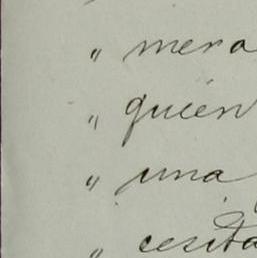 " mera
" quien
" una
" cesita